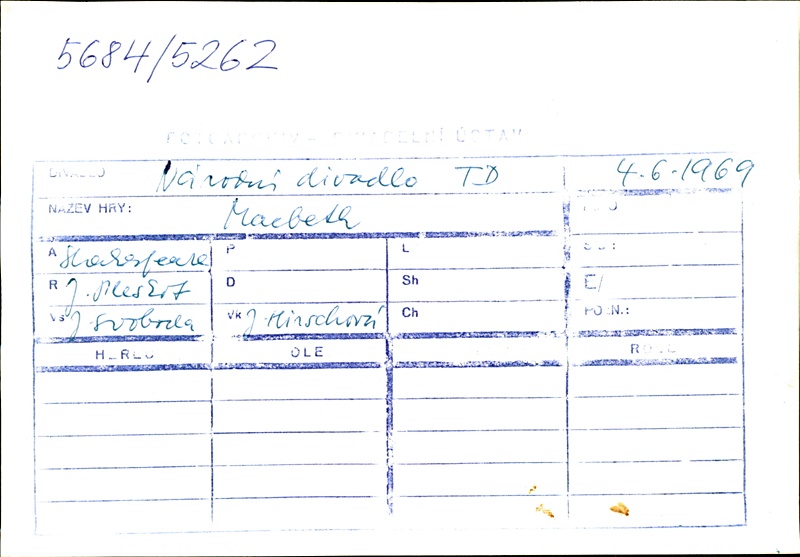 5684/5262
FOTOARCHIV – DIVADELNÍ ÚSTAV
DIVADLO Národní divadlo TD 4.6.1969
NÁZEV HRY: Macbeth
A Shakespeare P L
R J. Pleskot D Sh E/
VS J. Svoboda VK J. Hirschová Ch POZN.:
HEREC ROLE ROLE